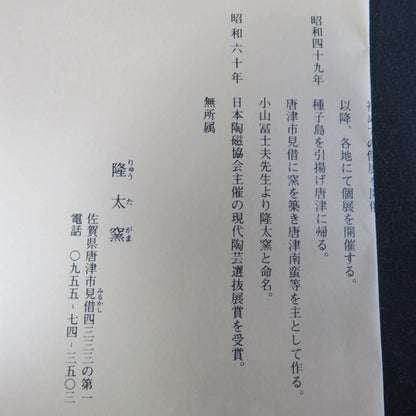 初めての個展を開催
以降、各地にて個展を開催する。
昭和四十九年
種子島を引揚げ唐津に帰る。
唐津市見借に窯を築き唐津南蛮等を主として作る。
小山冨士夫先生より隆太窯と命名。
昭和六十年
日本陶磁協会主催の現代陶芸選抜展賞を受賞。
無所属
隆太窯
りゅうたがま
佐賀県唐津市見借四三三三の第一
みるかし
電話 〇九五五-七四-三五〇三